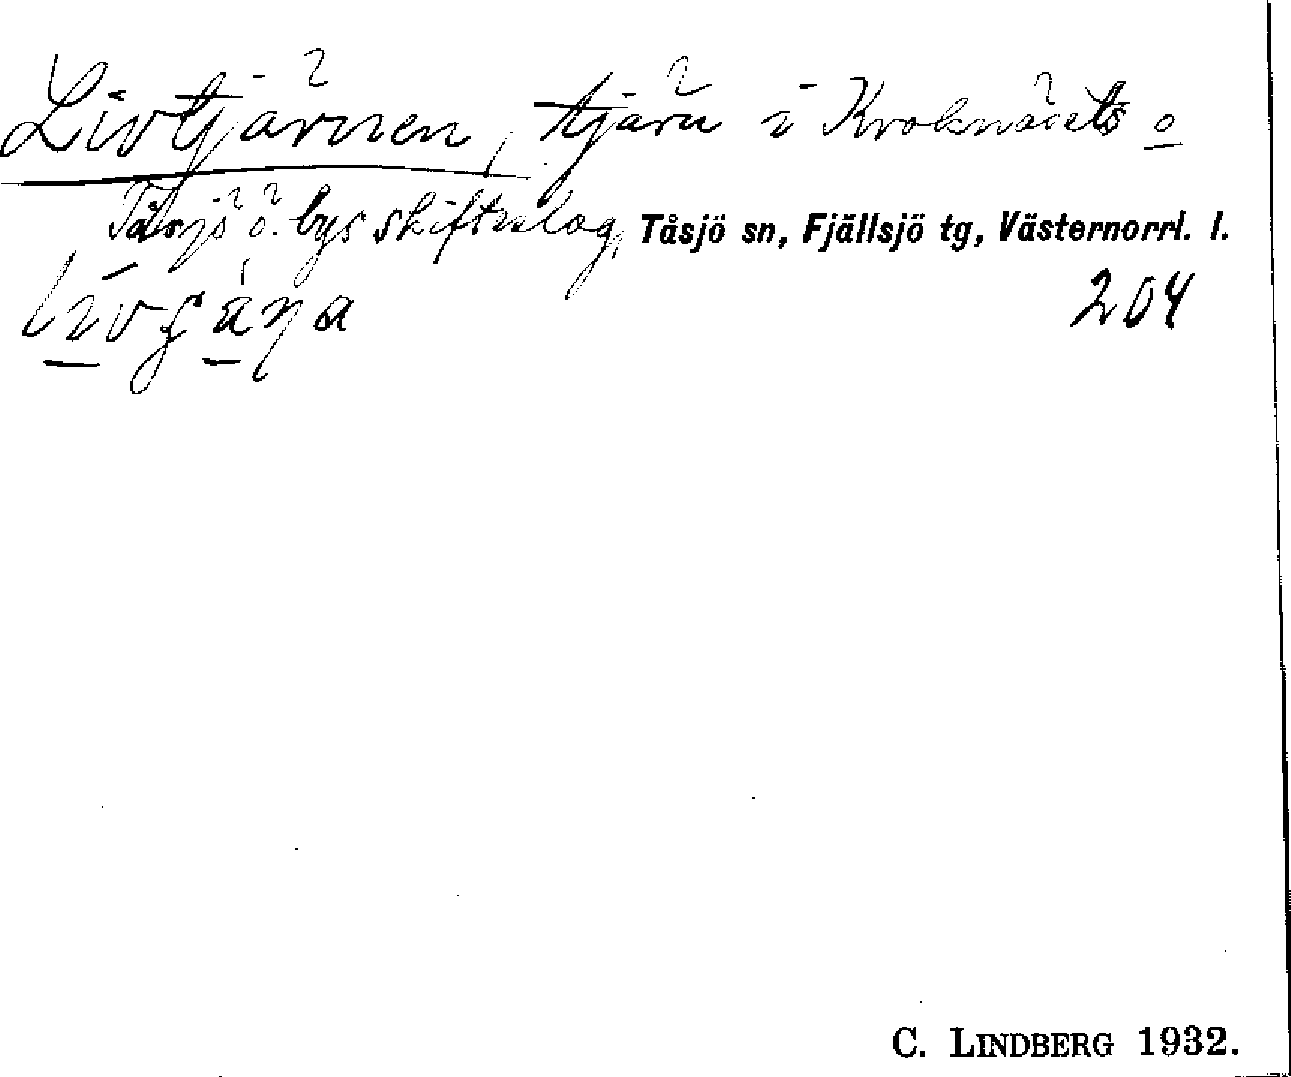 Livtjärnen, tjärn i Kroknäsets o
Tåsjö ö. bys skifteslag, Tåsjö sn, Fjällsjö tg, Västernorrl. l.
204
C. LINDBERG 1932.